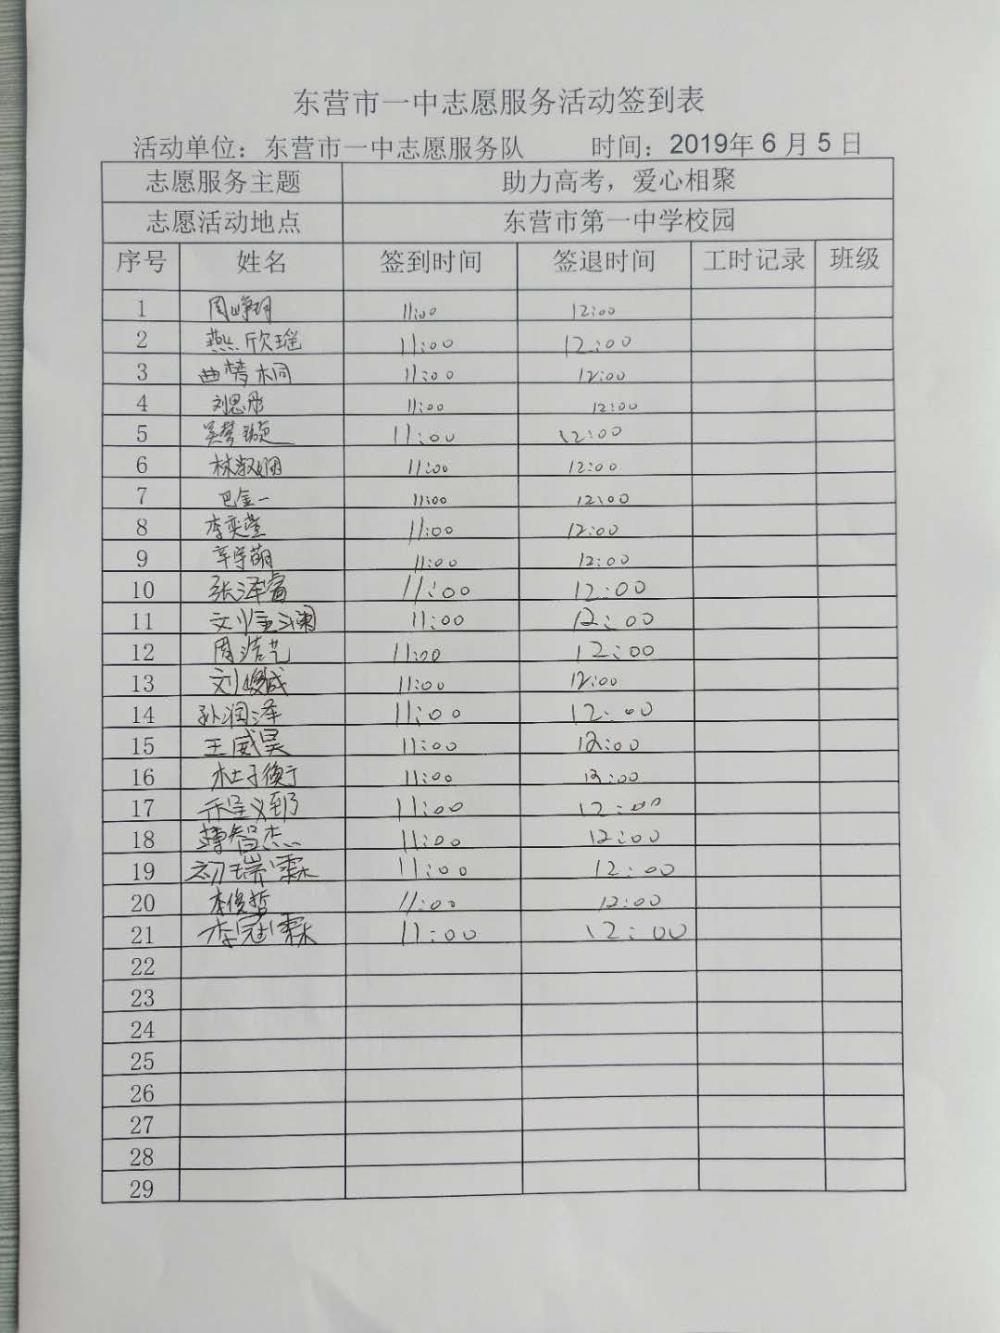 东营市一中志愿服务活动签到表
活动单位：东营市一中志愿服务队 时间：2019年 6 月 5 日
志愿服务主题 助力高考，爱心相聚
志愿活动地点 东营市第一中学校园
序号 姓名 签到时间 签退时间 工时记录 班级
1 周峥玥 11:00 12:00
2 燕欣瑶 11:00 12:00
3 曲梦桐 11:00 12:00
4 刘思彤 11:00 12:00
5 吴梦璇 11:00 12:00
6 林淑娴 11:00 12:00
7 巴金一 11:00 12:00
8 李奕萱 11:00 12:00
9 辛宇萌 11:00 12:00
10 张泽睿 11:00 12:00
11 刘金澜 11:00 12:00
12 周浩艺 11:00 12:00
13 刘峻成 11:00 12:00
14 孙润泽 11:00 12:00
15 王威昊 11:00 12:00
16 杜子衡 11:00 12:00
17 11:00 12:00
18 薄智杰 11:00 12:00
19 初瑞霖 11:00 12:00
20 李俊哲 11:00 12:00
21 李冠霖 11:00 12:00
22
23
24
25
26
27
28
29